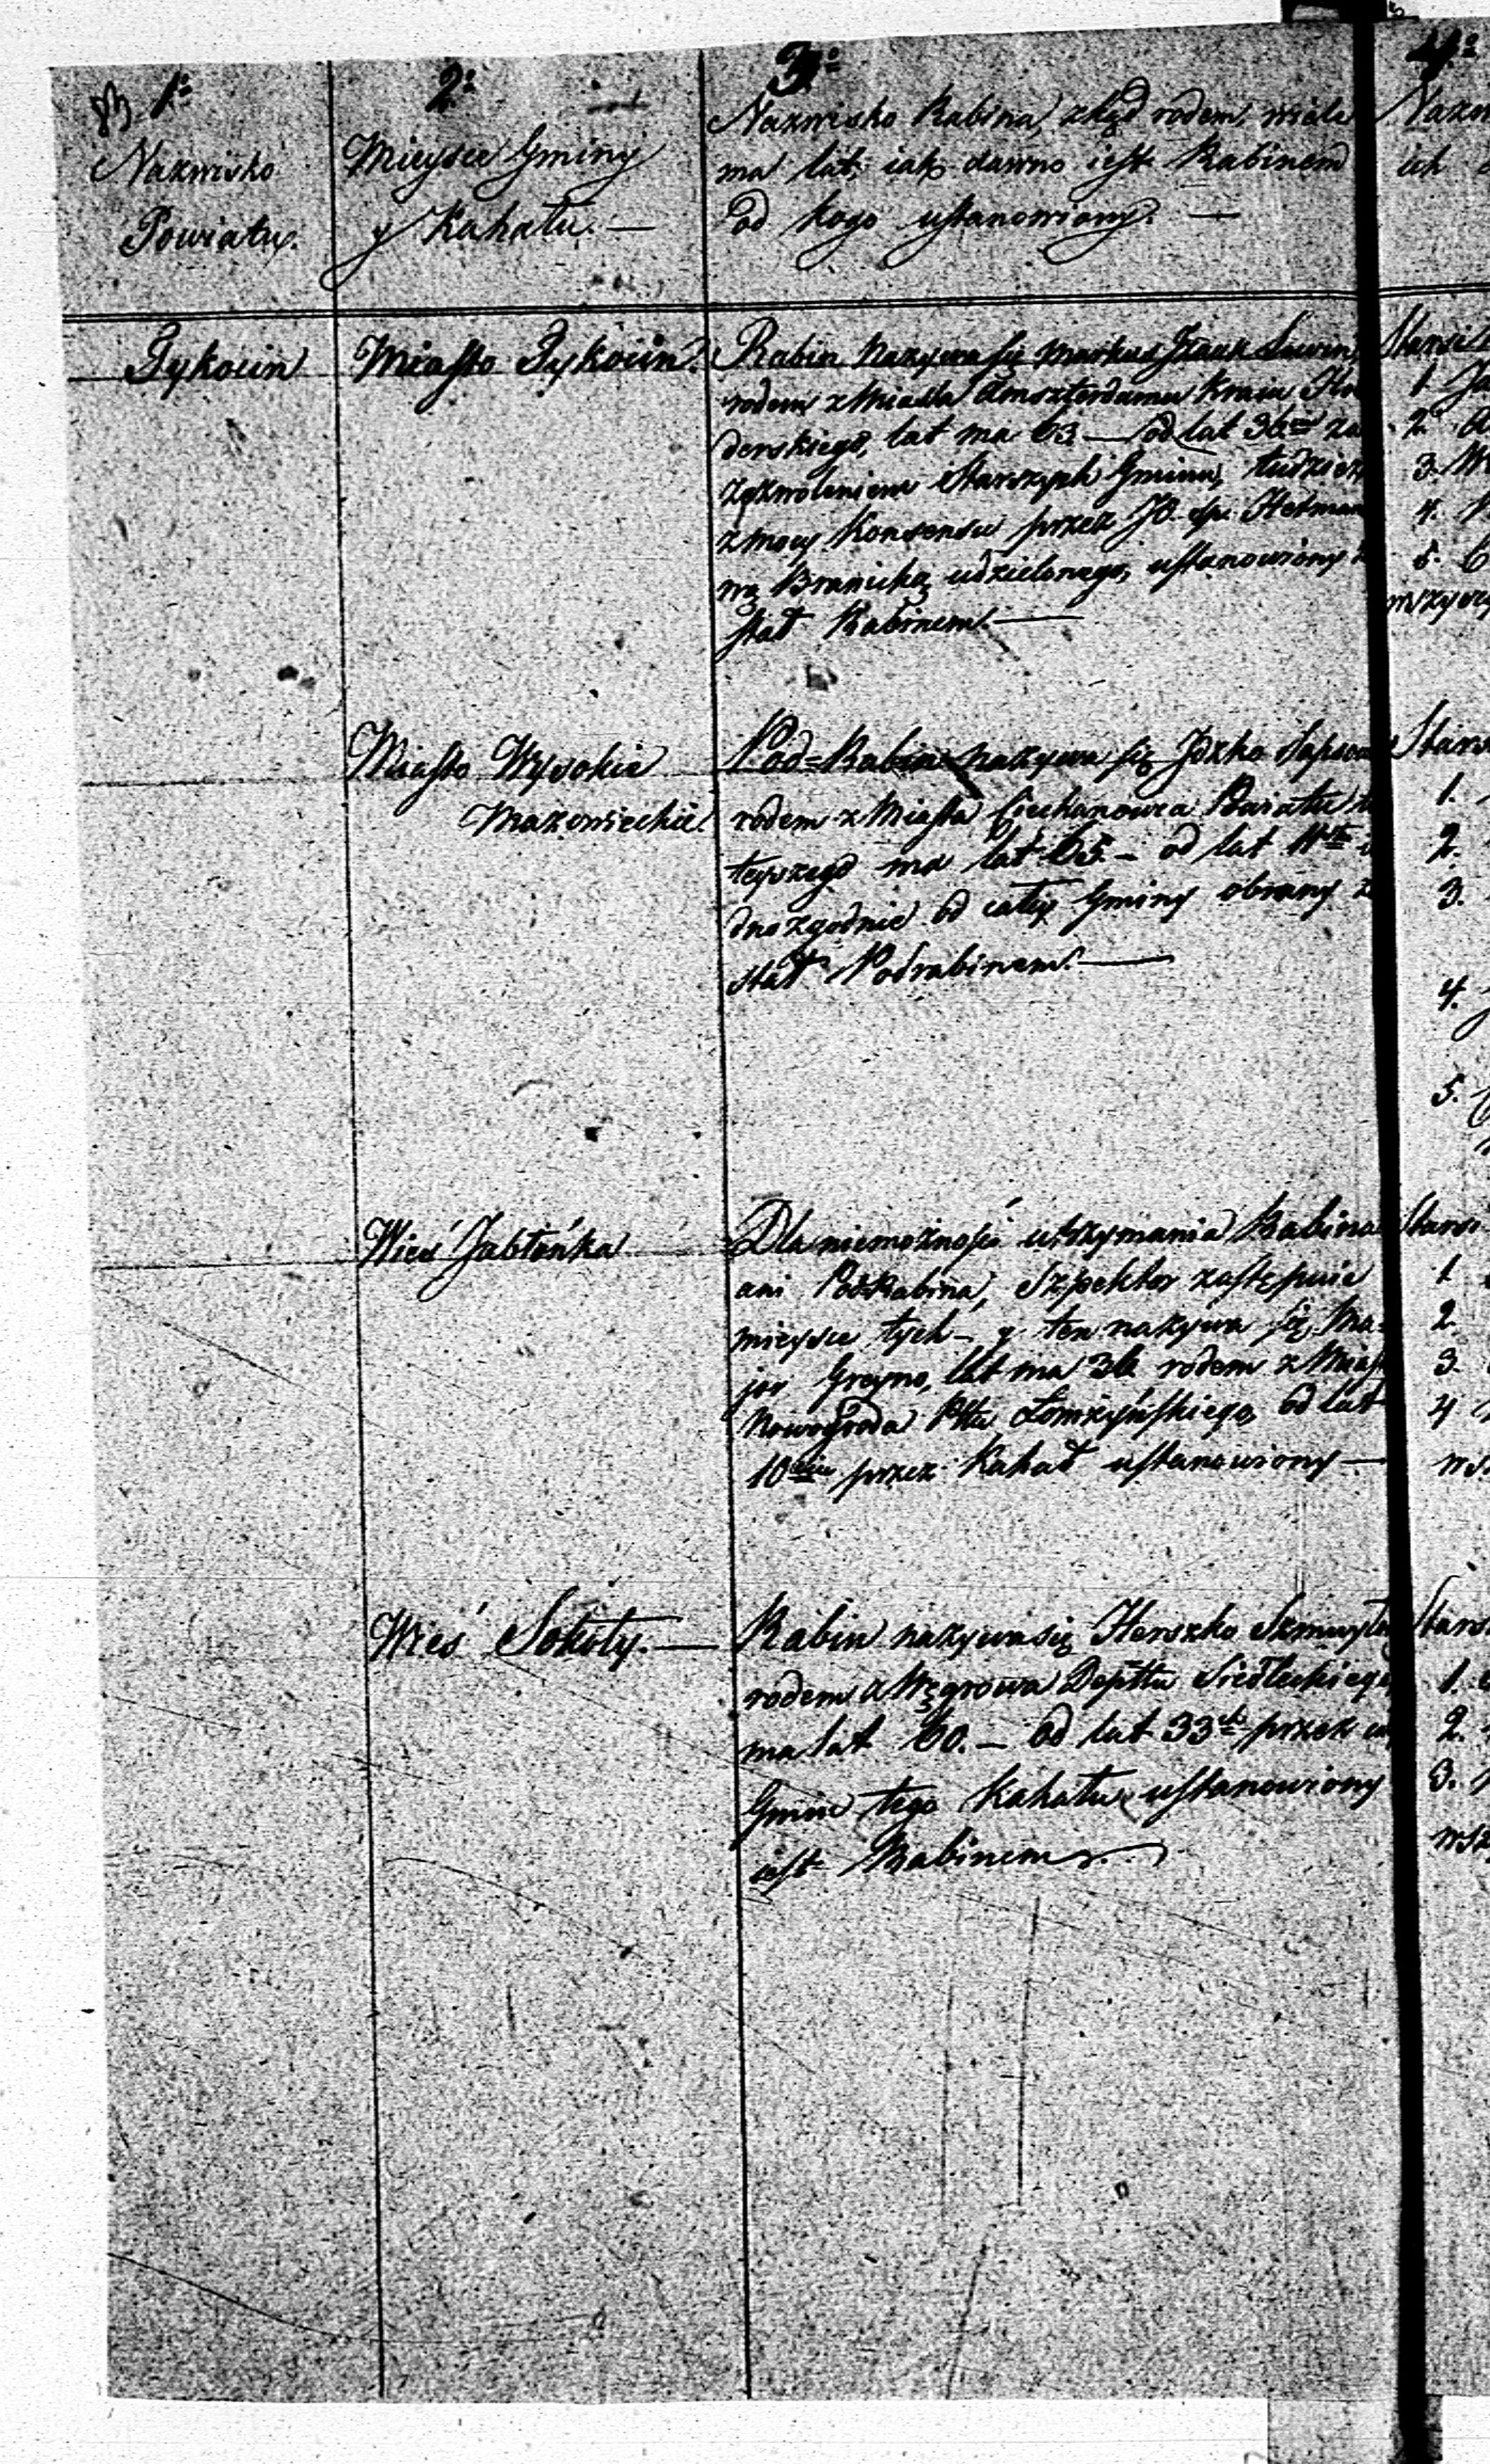 1º
Nazwisko
Powiatu.
2º
Mieysce Gminy
y Kahału. —
3º
Nazwisko Rabina, zkąd rodem, wiele
ma lat, iak dawno iest Rabinem
od kogo ustanowiony. —
4º
ich
Tykocin
Miasto Tykocin.
Rabin nazywa się Markus Izaak
rodem z Miasta Amszterdamu Kraiu
derskiego, lat ma 63 — od lat
zezwoleniem Starszych Gminu, tudzież
z mocy Konsensu przez JO.
wą Branicką udzielonego, ustanowiony
stał Rabinem. —
1.
2.
3.
4.
5.
Miasto Wysokie
Mazowieckie.
Pod=Rabin nazywa się Jozko
rodem z Miasta Ciechanowca Powiatu
teyszego ma lat 65. — od lat
dnozgodnie od całey Gminy obrany
stał Podrabinem. —
1.
2.
3.
4.
5.
Wieś Jabłońka
Dla niemożności utrzymania Rabina
ani Podrabina, Szpektor zastępuie
mieysce tych — y ten nazywa się Ma-
jor Greyno, lat ma 36 rodem z
Nowogroda Pttu Łomżyńskiego, od lat
10ciu przez Kahał ustanowiony —
1.
2.
3.
4
Wieś Sokoły. —
Rabin nazywa się Herszko
rodem z Węgrowa Depttu Siedleckiego
ma lat 60. — od lat 33ch przez
Gmin tego Kahału ustanowiony
iest Rabinem.
1.
2.
3.